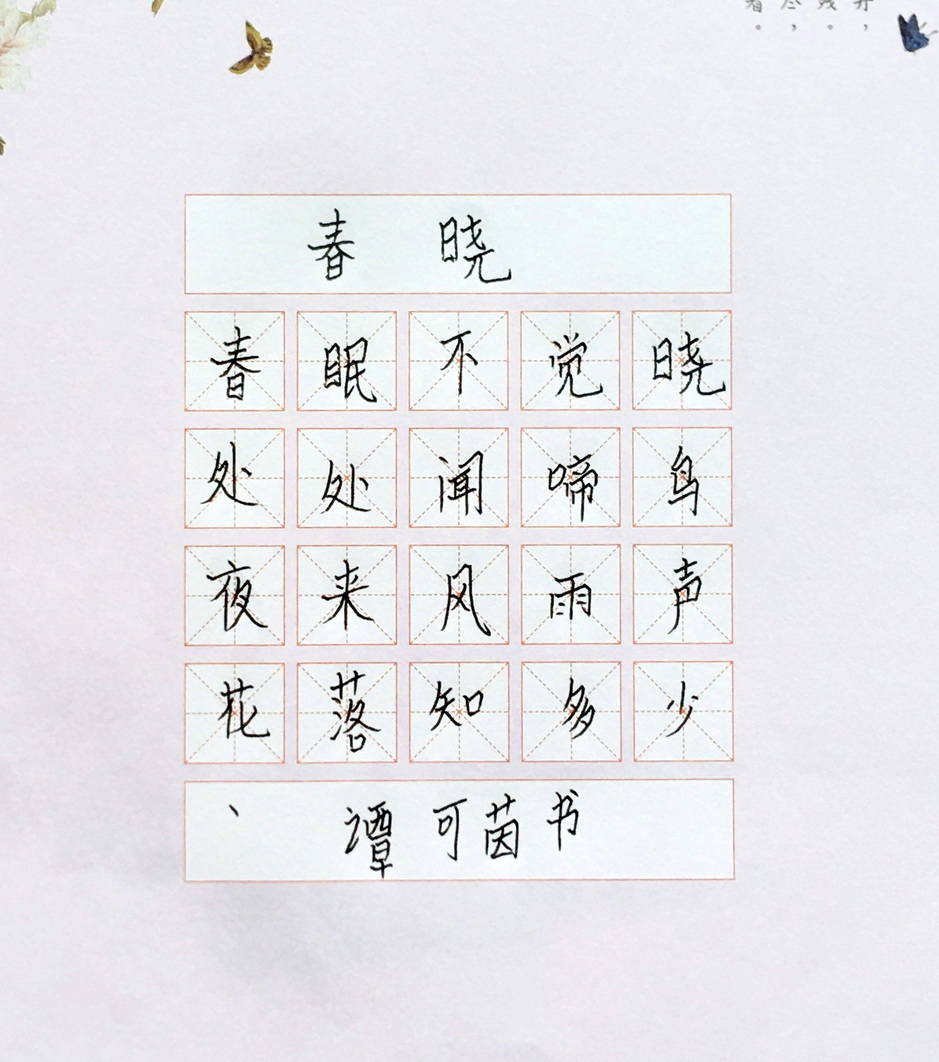 春晓
春眠不觉晓
处处闻啼鸟
夜来风雨声
花落知多少
谭可茵书